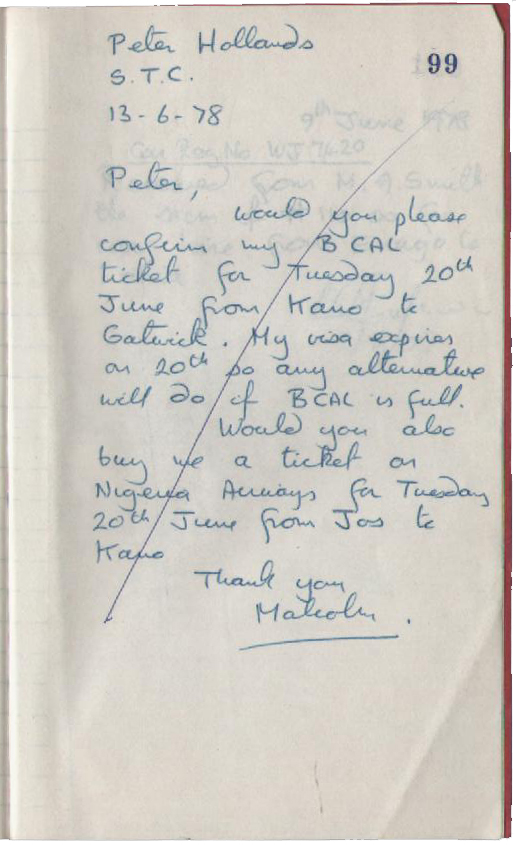 99
Peter Hollands
S.T.C.
13-6-78
9th June 1978
Car Reg No. WJ 7620
Peter,
would you please
confirm my B CAL
ticket for Tuesday 20th
June from Kano to
Gatwick. My visa expires
on 20th so any alternative
will do if BCAL is full.
Would you also
buy me a ticket on
Nigeria Airways for Tuesday
20th June from Jos to
Kano
Thank you
Malcolm.